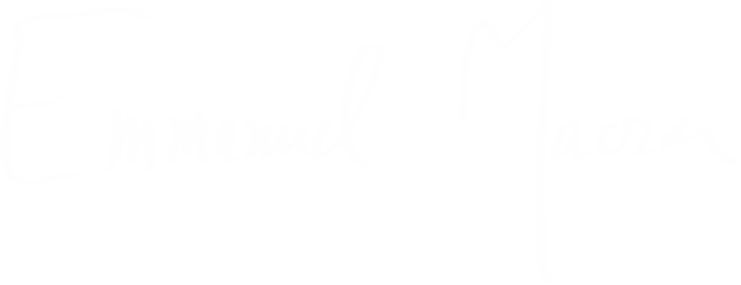 Emmanuel Macron